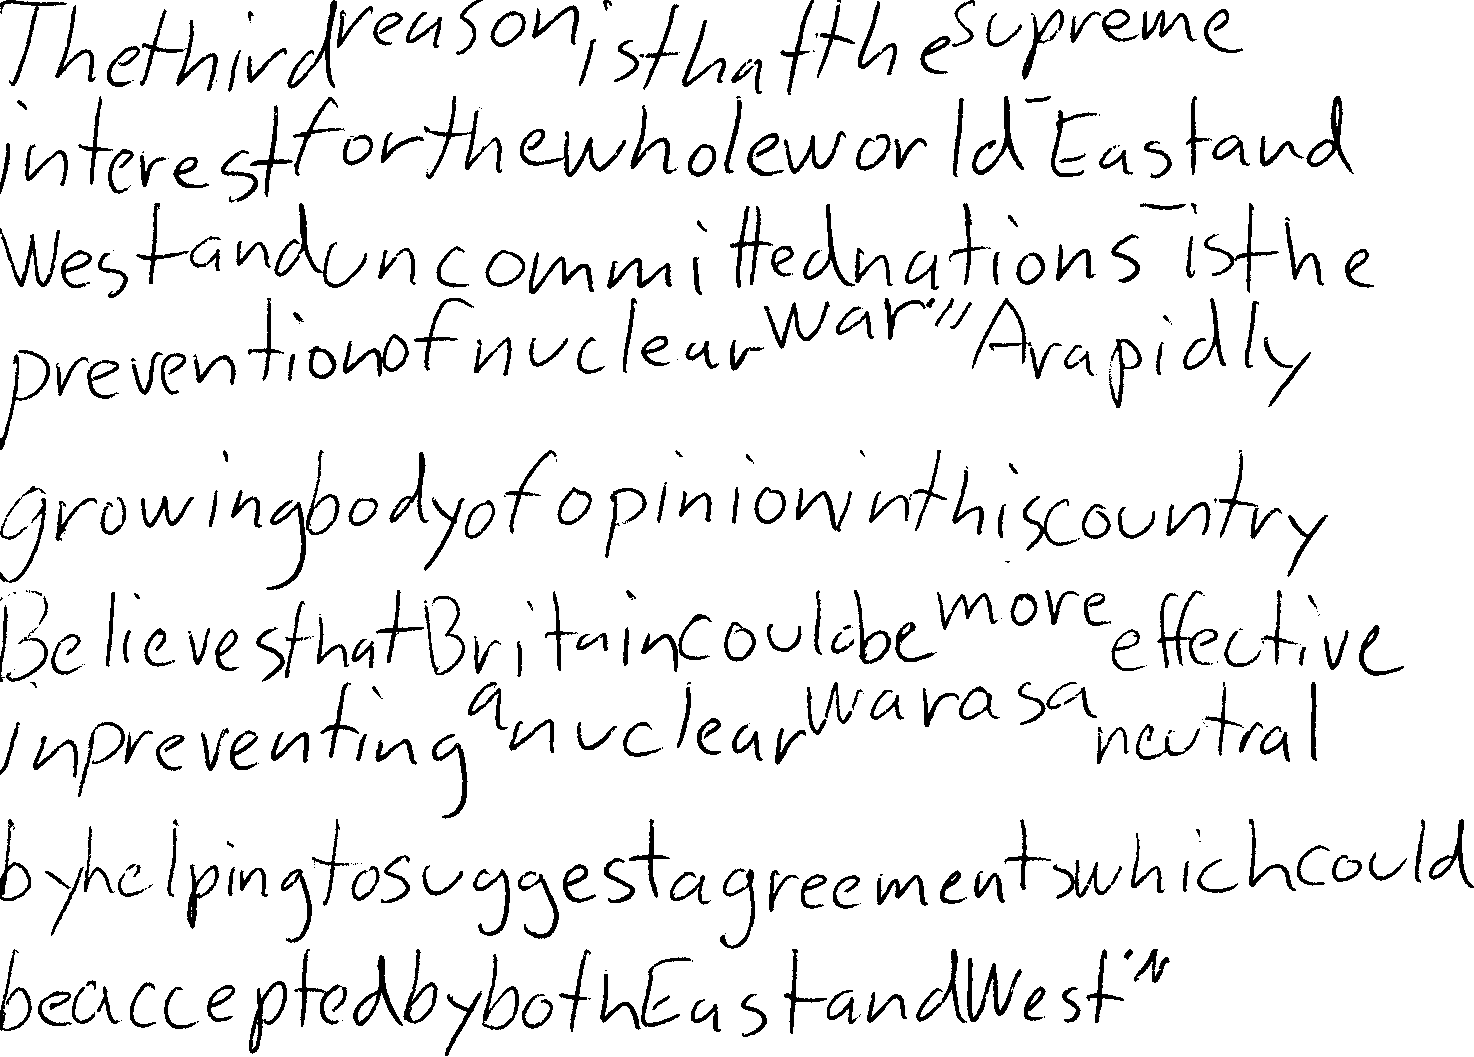 The third reason is that the supreme
interest for the whole world - East and
West and uncommitted nations - is the
prevention of nuclear war." A rapidly
growing body of opinion in this country
Believes that Britain could be more effective
in preventing a nuclear war as a neutral
by helping to suggest agreements which could
be accepted by both East and West."